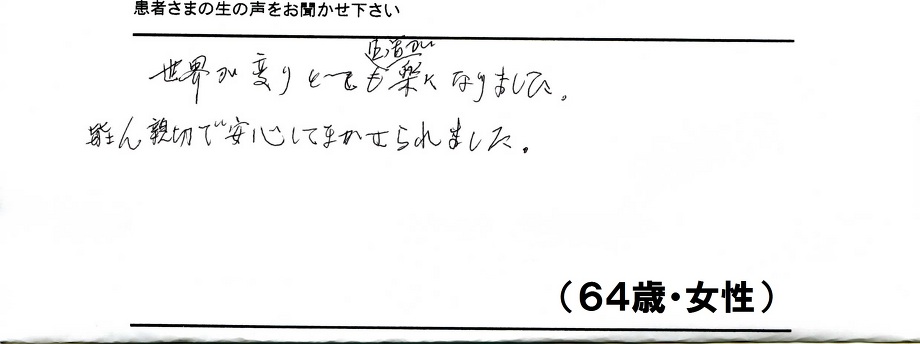 患者さまの生の声をお聞かせ下さい
生活が
世界が変りとても楽になりました。
皆さん親切で安心してまかせられました。
（64歳・女性）